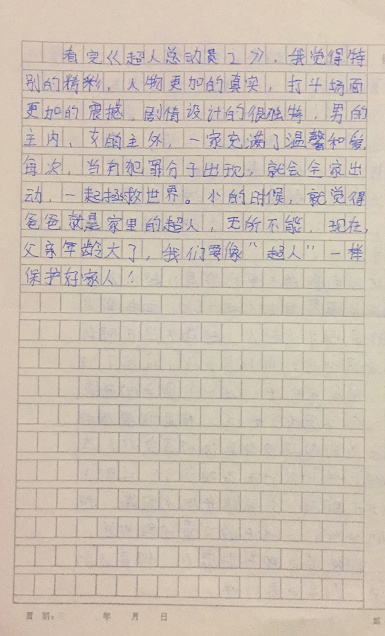 看完《超人总动员2》，我觉得特
别的精彩，人物更加的真实，打斗场面
更加的震撼，剧情设计的很独特，男的
主内，女的主外，一家充满了温馨和爱
每次，当有犯罪分子出现，就会全家出
动，一起拯救世界。小的时候，就觉得
爸爸就是家里的超人，无所不能，现在，
父亲年龄大了，我们要像“超人”一样
保护好家人！
年 月 日